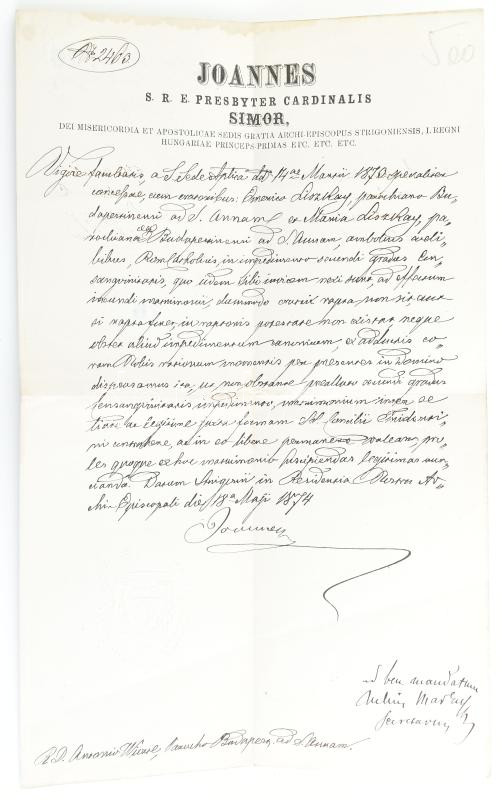 № 2463.
500
JOANNES
S. R. E. PRESBYTER CARDINALIS
SIMOR,
DEI MISERICORDIA ET APOSTOLICAE SEDIS GRATIA ARCHI-EPISCOPUS STRIGONIENSIS, I. REGNI
HUNGARIAE PRINCEPS-PRIMAS ETC. ETC. ETC.
Vigore facultatis a S. Sede Aplica ddto 14ae Martii 1870 specialiter
concessae, cum oratoribus: Emerico Liszkay, parochiano Bu-
dapestinensi ad S. Annam et Maria Liszkay, pa-
rochiana aeq Budapestinensi ad S. Annam, ambobus coeli-
bibus, Rom. Catholicis, in impedimento secundi gradus Con-
sanguinitatis, quo iidem sibi invicem nexi sunt, ad effectum
ineundi matrimonii, dummodo oratrix rapta non sit, aut
si rapta fuerit, in raptoris potestate non existat, neque
obstet aliud impedimentum canonicum, ex adductis co-
ram Nobis rationum momentis per praesentes in Domino
dispensamus ita, ut non obstante praefato secundi gradus
Consanguinitatis impedimento, matrimonium inter se
licite ac legitime juxta formam S. Concilii Tridenti-
ni contrahere, ac in eo libere permanere valeant, pro-
les quoque ex hoc matrimonio suscipiendas legitimas nun-
ciando. Datum Strigonii in Residentia Nostra Ar-
chi-Episcopali die 18a Maji 1874
Joannes
ad ben mandatum
Secretarius
A. D. Antonio Parocho Budapest. ad S. Annam.